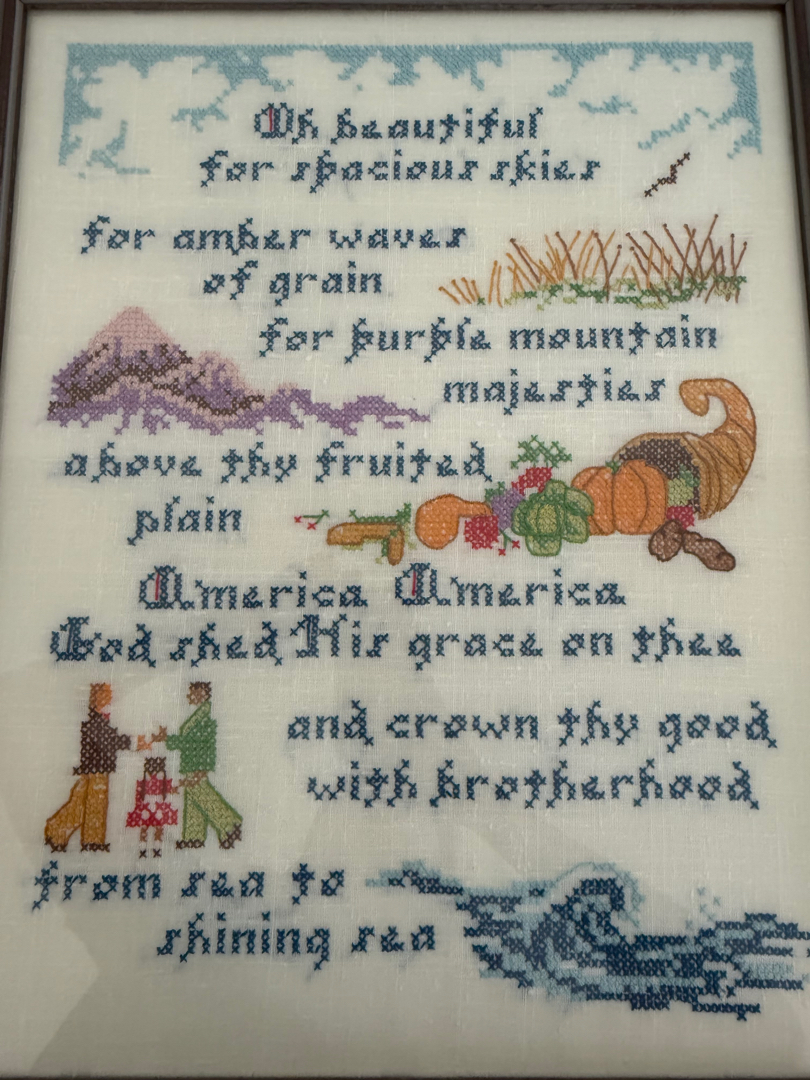 Oh beautiful
for spacious skies
for amber waves
of grain
for purple mountain
majesties
above thy fruited
plain
America America
God shed His grace on thee
and crown thy good
with brotherhood
from sea to
shining sea